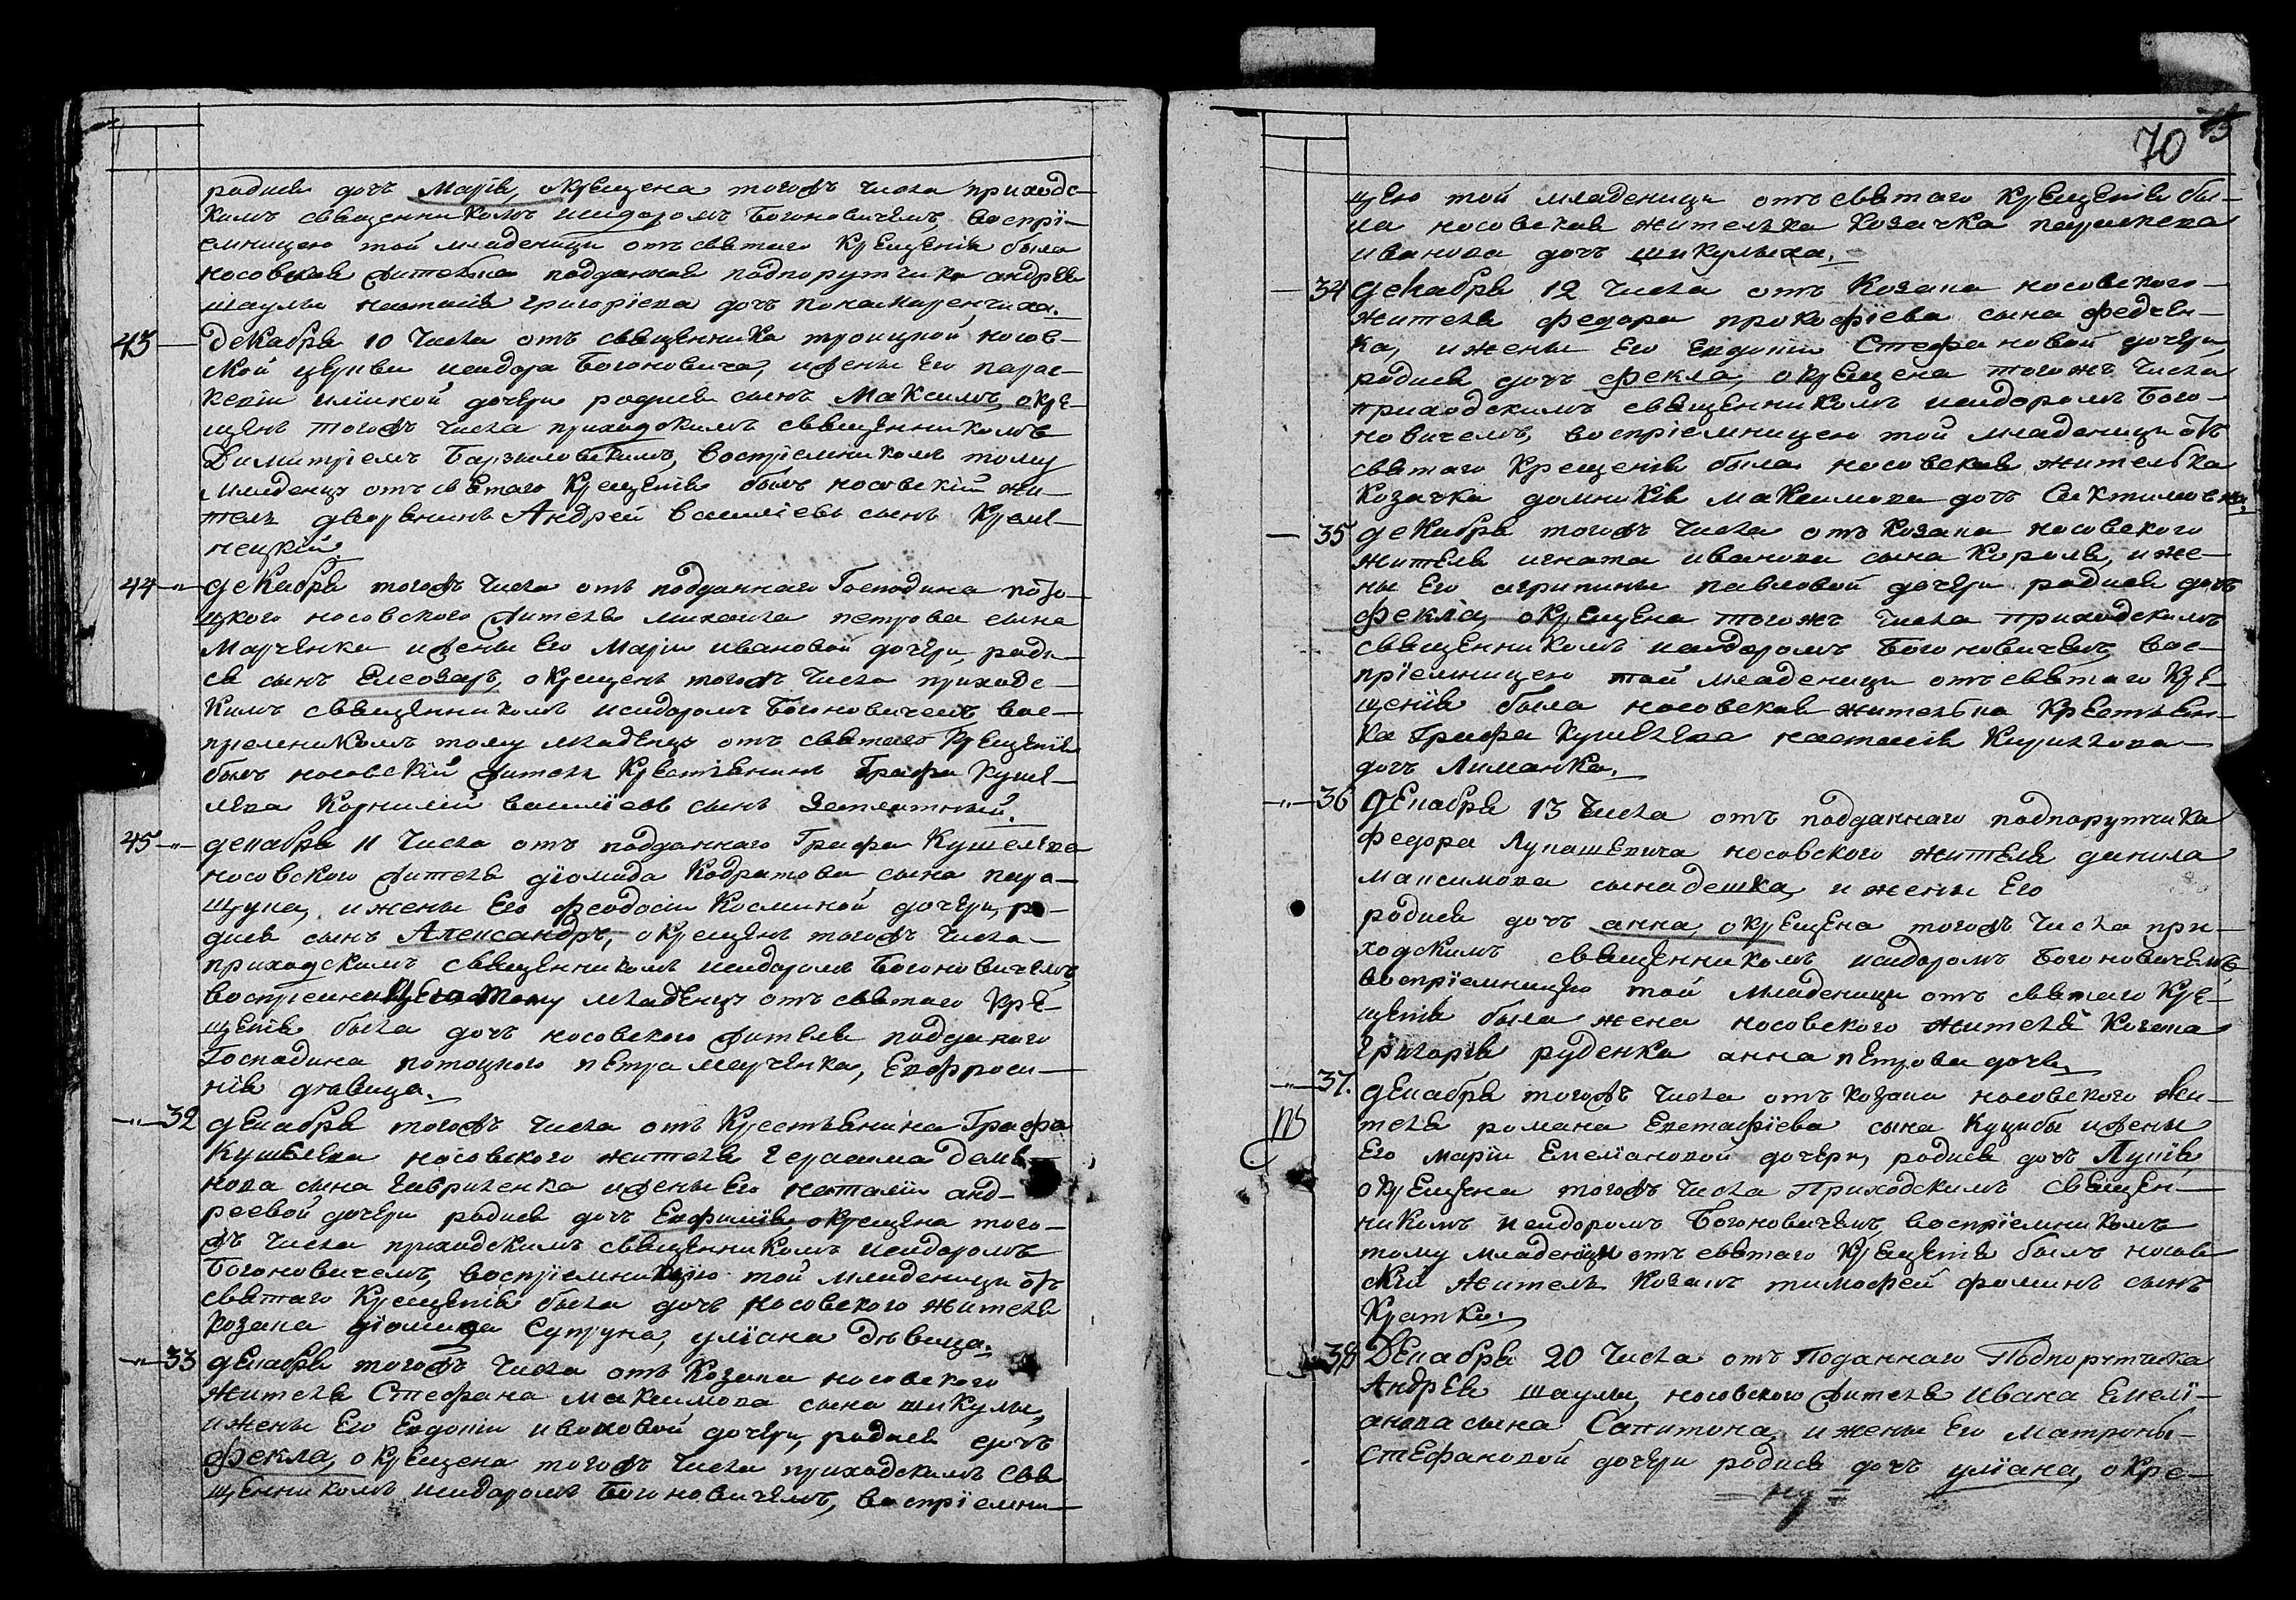 родися дочъ Марія, окрещена тогожъ числа приходс-
кимъ священникомъ исидоромъ Богоновичемъ, воспрі-
емницею той младеници отъ святаго крещенія была
носовская жителька подданная подпорутчика андрея
шаулы настасія григоріева дочъ
43 — декабря 10 числа отъ священника троицкой носов-
ской церкви исидора Богоновича, ижены его парас-
кевіи иліиной дочери родися сынъ Максимъ, окре-
щенъ тогожъ числа приходскимъ священникомъ
Димитріемъ воспріемникомъ тому
младенцу отъ святаго крещенія былъ носовскій жи-
тель дворянинъ Андрей василіевъ сынъ Креме-
нецкій.
44 -"- декабря тогожъ числа отъ подданнаго Господина пото-
цкого носовского жителя михаила петрова сына
Марченка ижены его Маріи ивановой дочери, роди-
ся сынъ Елеозаръ, окрещенъ тогожъ числа приходс-
кимъ священникомъ исидоромъ Богоновичемъ вос-
преемникомъ тому младенцу отъ святаго крещенія
былъ носовскій житель крестьянинъ Графа Куше-
лева Корнилій василіевъ сынъ
45 -"- декабря 11 числа отъ подданнаго Графа Кушелева
носовского жителя діомида Кодратова сына пара-
щука, ижены его феодосіи Косминой дочери, ро-
дися сынъ Александръ, окрещенъ тогожъ числа
приходскимъ священникомъ исидоромъ Богоновичемъ,
воспріемницею тому младенцу отъ святаго кре-
щенія была дочъ носовского жителя подданого
Господина потоцкого петра марченка, Евфроси-
нія дѣвица.
-"- 32 декабря тогожъ числа отъ Крестьянина Графа
Кушелева носовского жителя герасима демя-
нова сына гавриленка ижены его наталіи анд-
реевой дочери родися дочъ Евфимія, окрещена того-
жъ числа приходскимъ священникомъ исидоромъ
Богоновичемъ, воспріемницею той младеници отъ
святаго крещенія была дочъ носовского жителя
козака діомида Супруна, уліана дѣвица.
-"- 33 декабря тогожъ числа отъ Козака носовского
жителя Стефана максимова сына шикулы,
ижены его Евдокіи ивановой дочери, родися дочъ
фекла, окрещена тогожъ числа приходскимъ свя-
щенникомъ исидоромъ Богоновичемъ, воспріемни-
70
цею той младеници отъ святаго крещенія бы-
ла носовская жителька козачка параскева
иванова дочъ шикулыха.
— 34 декабря 12 числа отъ Козака носовского
жителя федора прокофіева сына федчен-
ка, ижены его евдокіи Стефановой дочери,
родися дочъ фекла, окрещена тогожъ числа
приходскимъ священникомъ исидоромъ Бого-
новичемъ, воспріемницею той младеници отъ
святаго крещенія была носовская жителька
козачка домникія максимова дочъ
— 35 декабря тогожъ числа отъ козака носовского
жителя игната иванова сына Короля, иже-
ны его агрипины павловой дочери родися дочъ
фекла, окрещена тогожъ числа приходскимъ
священникомъ исидоромъ Богоновичемъ, вос-
пріемницею той младеници отъ святаго кре-
щенія была носовская жителька крестьян-
ка Графа Кушелева настасія Кирилова
дочъ Лиманка.
-"- 36 декабря 13 числа отъ подданнаго подпорутчика
федора Лукашевича носовского жителя данила
максимова сына дешка, и жены его
родися дочъ анна, окрещена тогожъ числа при-
ходскимъ священникомъ исидоромъ Богоновичемъ
воспріемницею той младеници отъ святаго кре-
щенія была жена носовского жителя козака
григорія руденка анна петрова дочъ.
-"- 37. декабря тогожъ числа отъ козака носовского жи-
теля романа Евстафіева сына Куцибы ижены
его маріи Емеліановой дочери, родися дочъ Лукія,
окрещена тогожъ числа Приходскимъ священ-
никомъ исидоромъ Богоновичемъ, воспріемникомъ
тому младенци отъ святаго крещенія былъ носов
скій житель козакъ тимофей фоминъ сынъ
Кратко.
38 Декабря 20 числа отъ Поданнаго Подпорутчика
Андрея шаулы, носовского жителя ивана Емелі-
анова сына Сапитона, и жены его матроны
стефановой дочери родися дочъ уліана, окре-